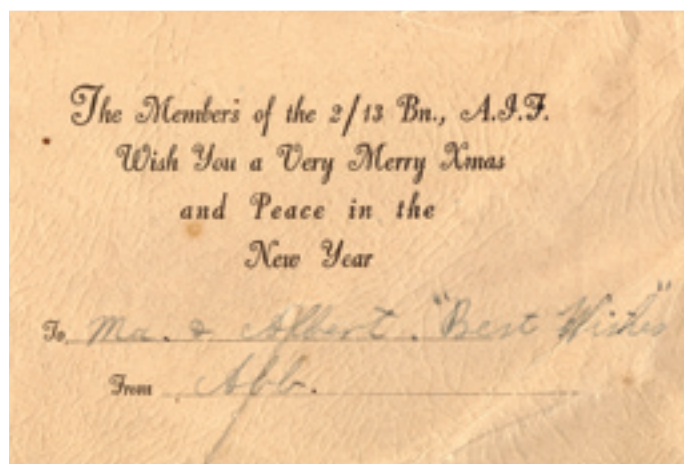 The Members of the 2/13 Bn., A.I.F.
Wish You a Very Merry Xmas
and Peace in the
New Year
To Ma. & Albert. "Best Wishes"
From Abb.